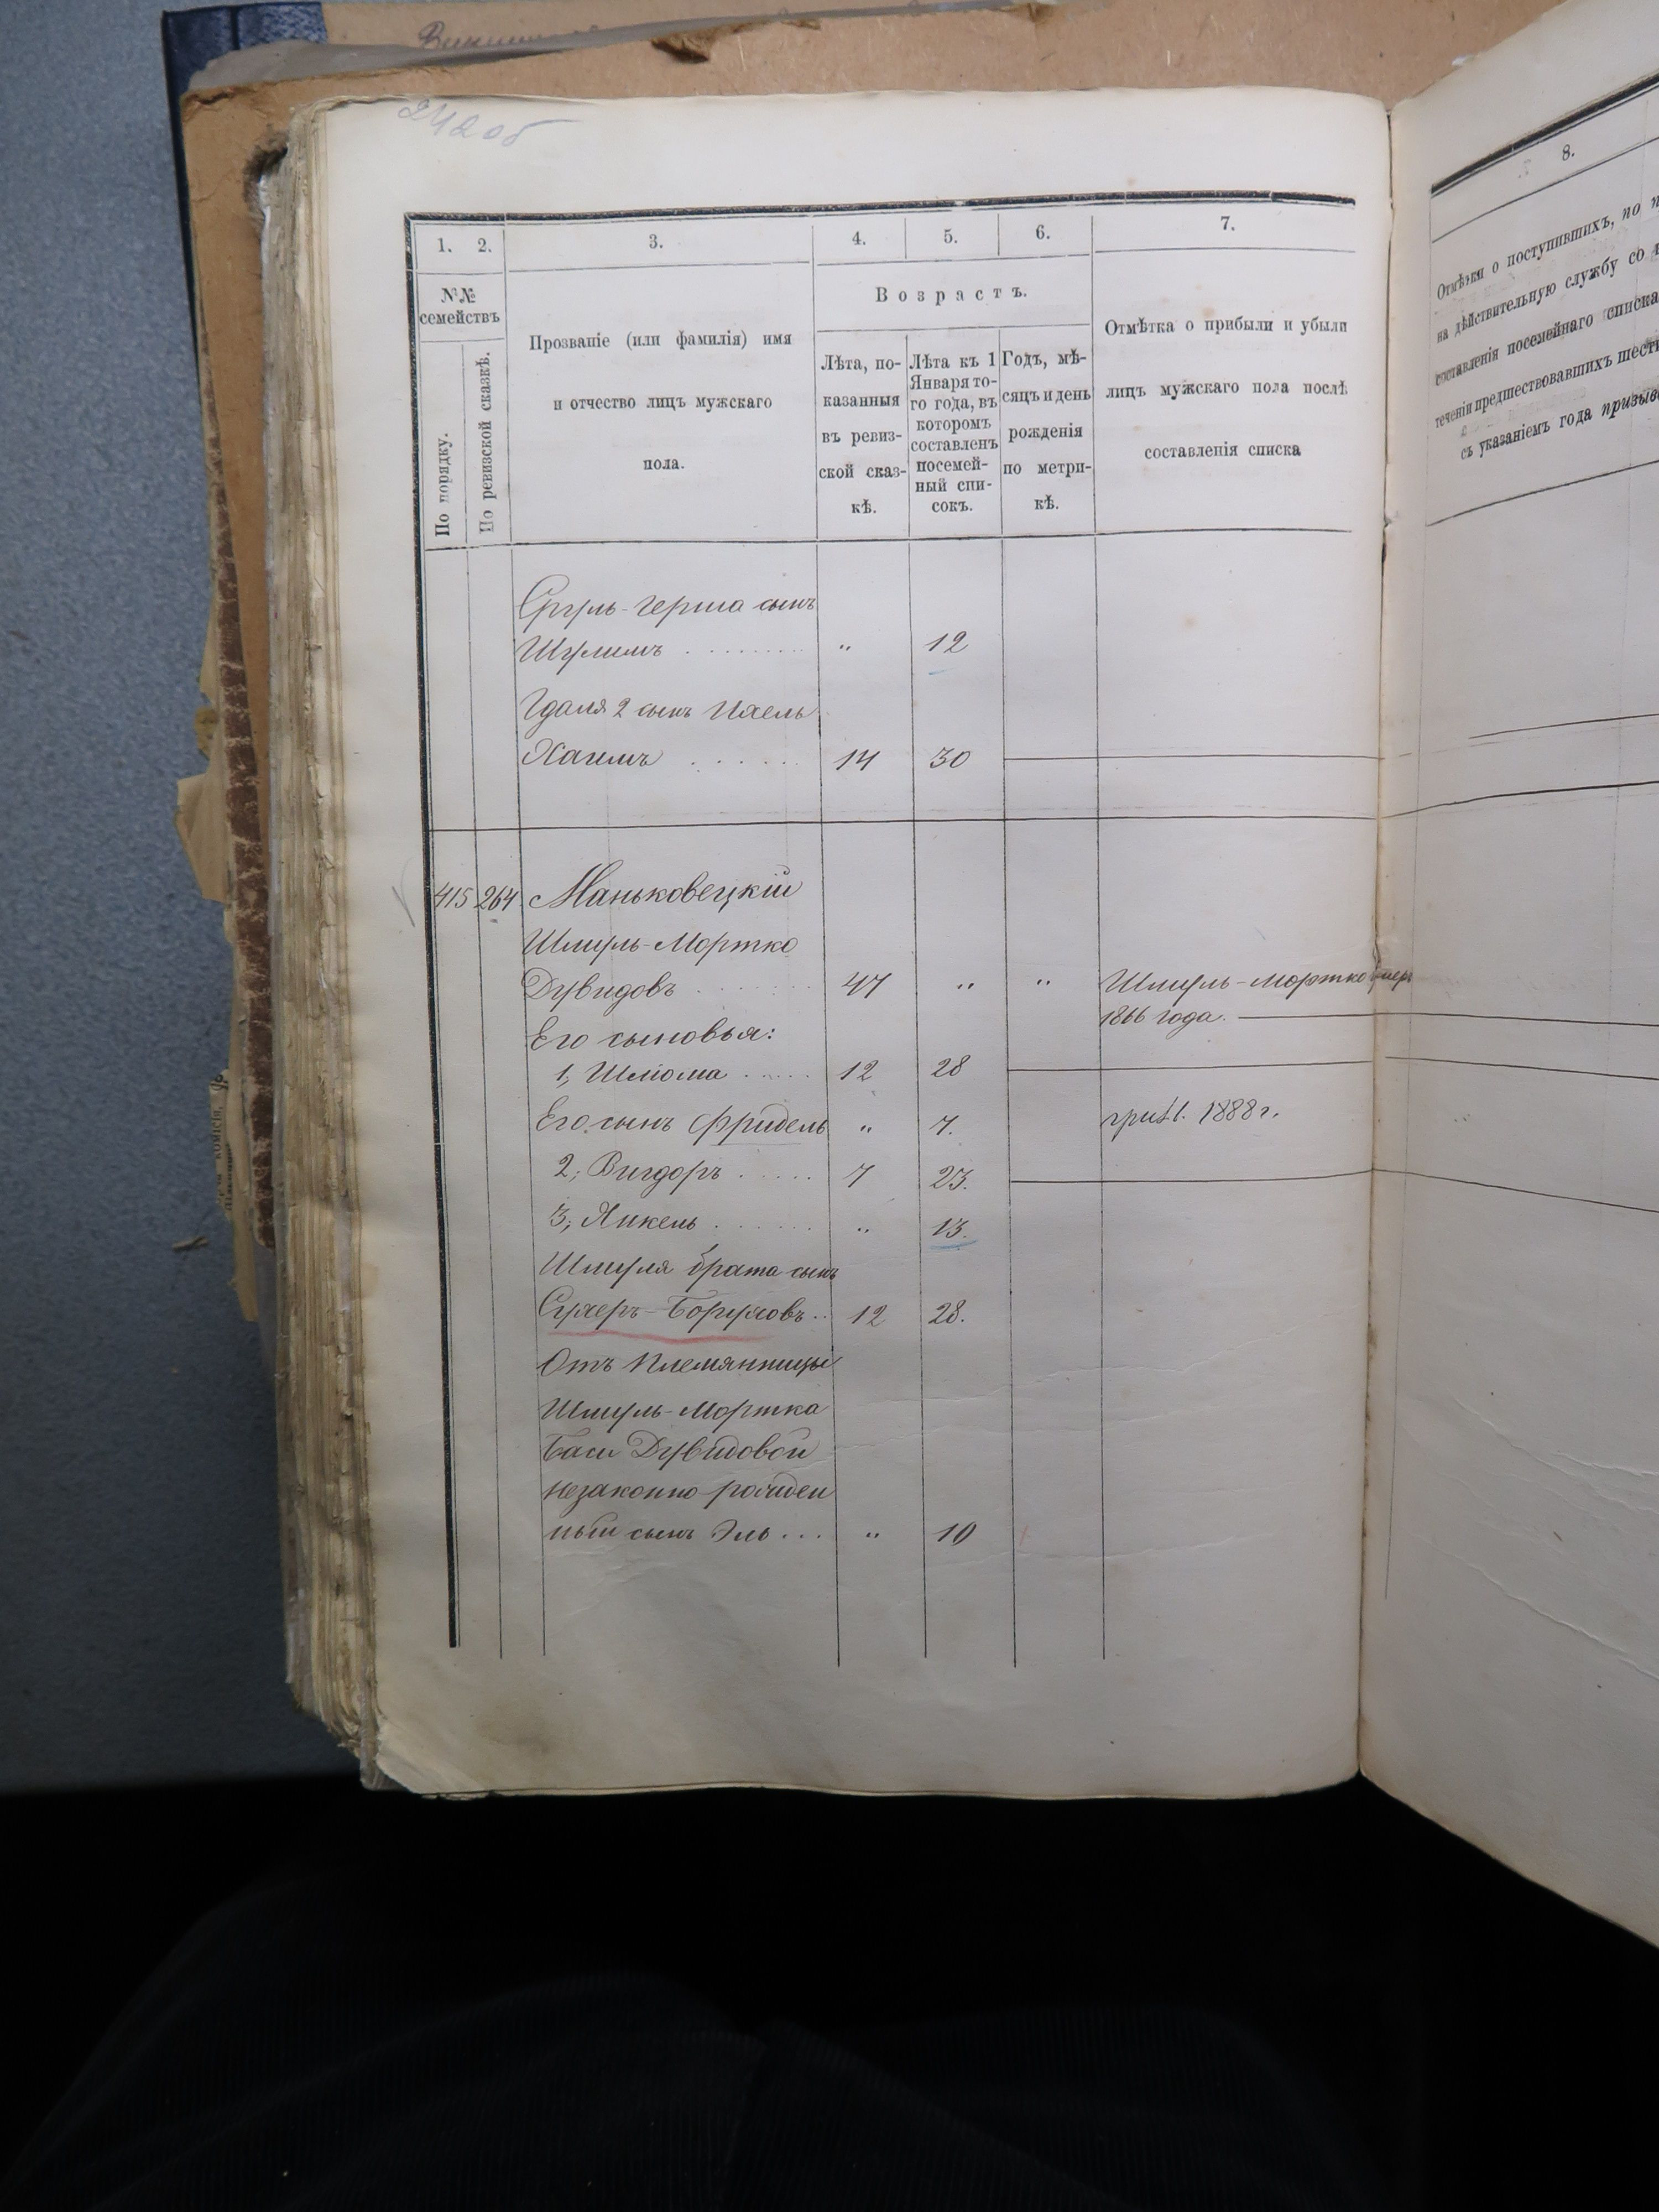 242 об
1. 2. 3. 4. 5. 6. 7.
№№ семействъ
По порядку.
По ревизской сказкѣ.
Прозваніе (или фамилія) имя
и отчество лицъ мужскаго
пола.
Возрастъ.
Лѣта, по-
казанныя
въ ревиз-
ской сказ-
кѣ.
Лѣта къ 1
Января то-
го года, въ
которомъ
составленъ
посемей-
ный спи-
сокъ.
Годъ, мѣ-
сяцъ и день
рожденія
по метри-
кѣ.
Отмѣтка о прибыли и убыли
лицъ мужскаго пола послѣ
составленія списка
Сруль-Герша сынъ
Шулимъ . . . . . . . . „ 12
Гдаля 2 сынъ Ихель
Хаимъ . . . . . . 14 30
415 264 Маньковецкій
Шмуль-Мортко
Дувидовъ . . . . . . . 47 „ „ Шмуль-Мортко умеръ
1866 года.
Его сыновья:
1, Шлiома . . . . . 12 28
Его сынъ Фридель „ 7. 1888 г.
2, Вигдоръ . . . . . 7 23.
3, Янкель . . . . . . „ 13.
Шмуля брата сынъ
Сухеръ-Боруховъ . . 12 28.
Отъ племянницы
Шмуль-Мортка
Баси Дувидовой
незаконно-рожден
ный сынъ Эль . . . „ 10
8.
Отмѣтки о поступившихъ, по
на дѣйствительную службу со
составленія посемейнаго списка
теченіи предшествовавшихъ шести
съ указаніемъ года призыва